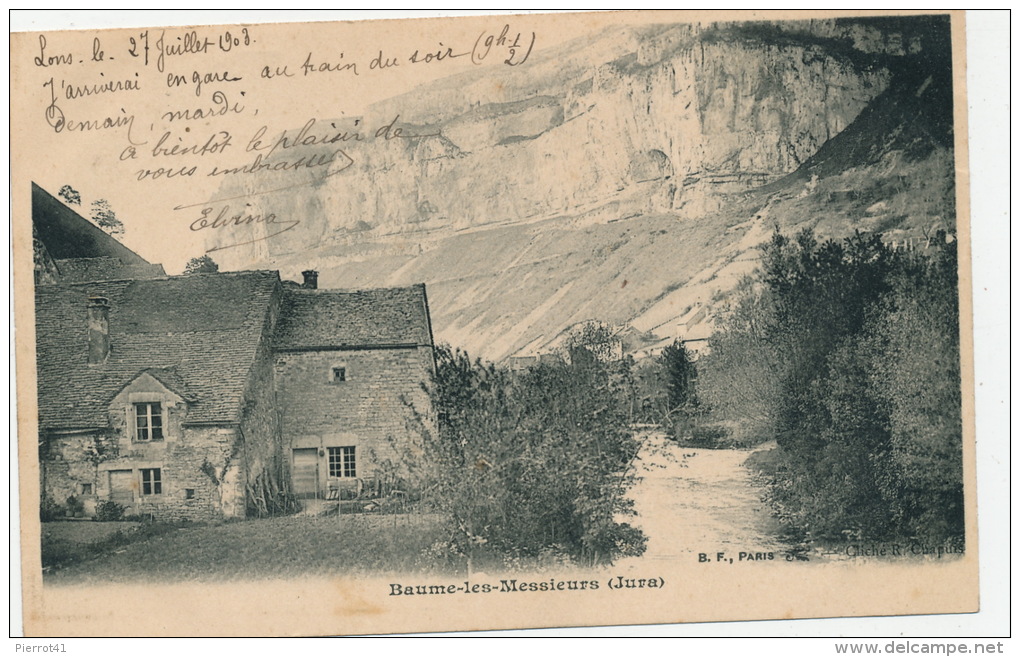 Lons. le. 27 Juillet 1903.
J'arriverai en gare au train du soir (9h 1/2)
Demain, mardi,
à bientôt le plaisir de
vous embrasser
Elvina
B. F., PARIS
Cliché R. Chapuis
BAUME-LES-MESSIEURS (JURA)
Pierrot41
www.delcampe.net